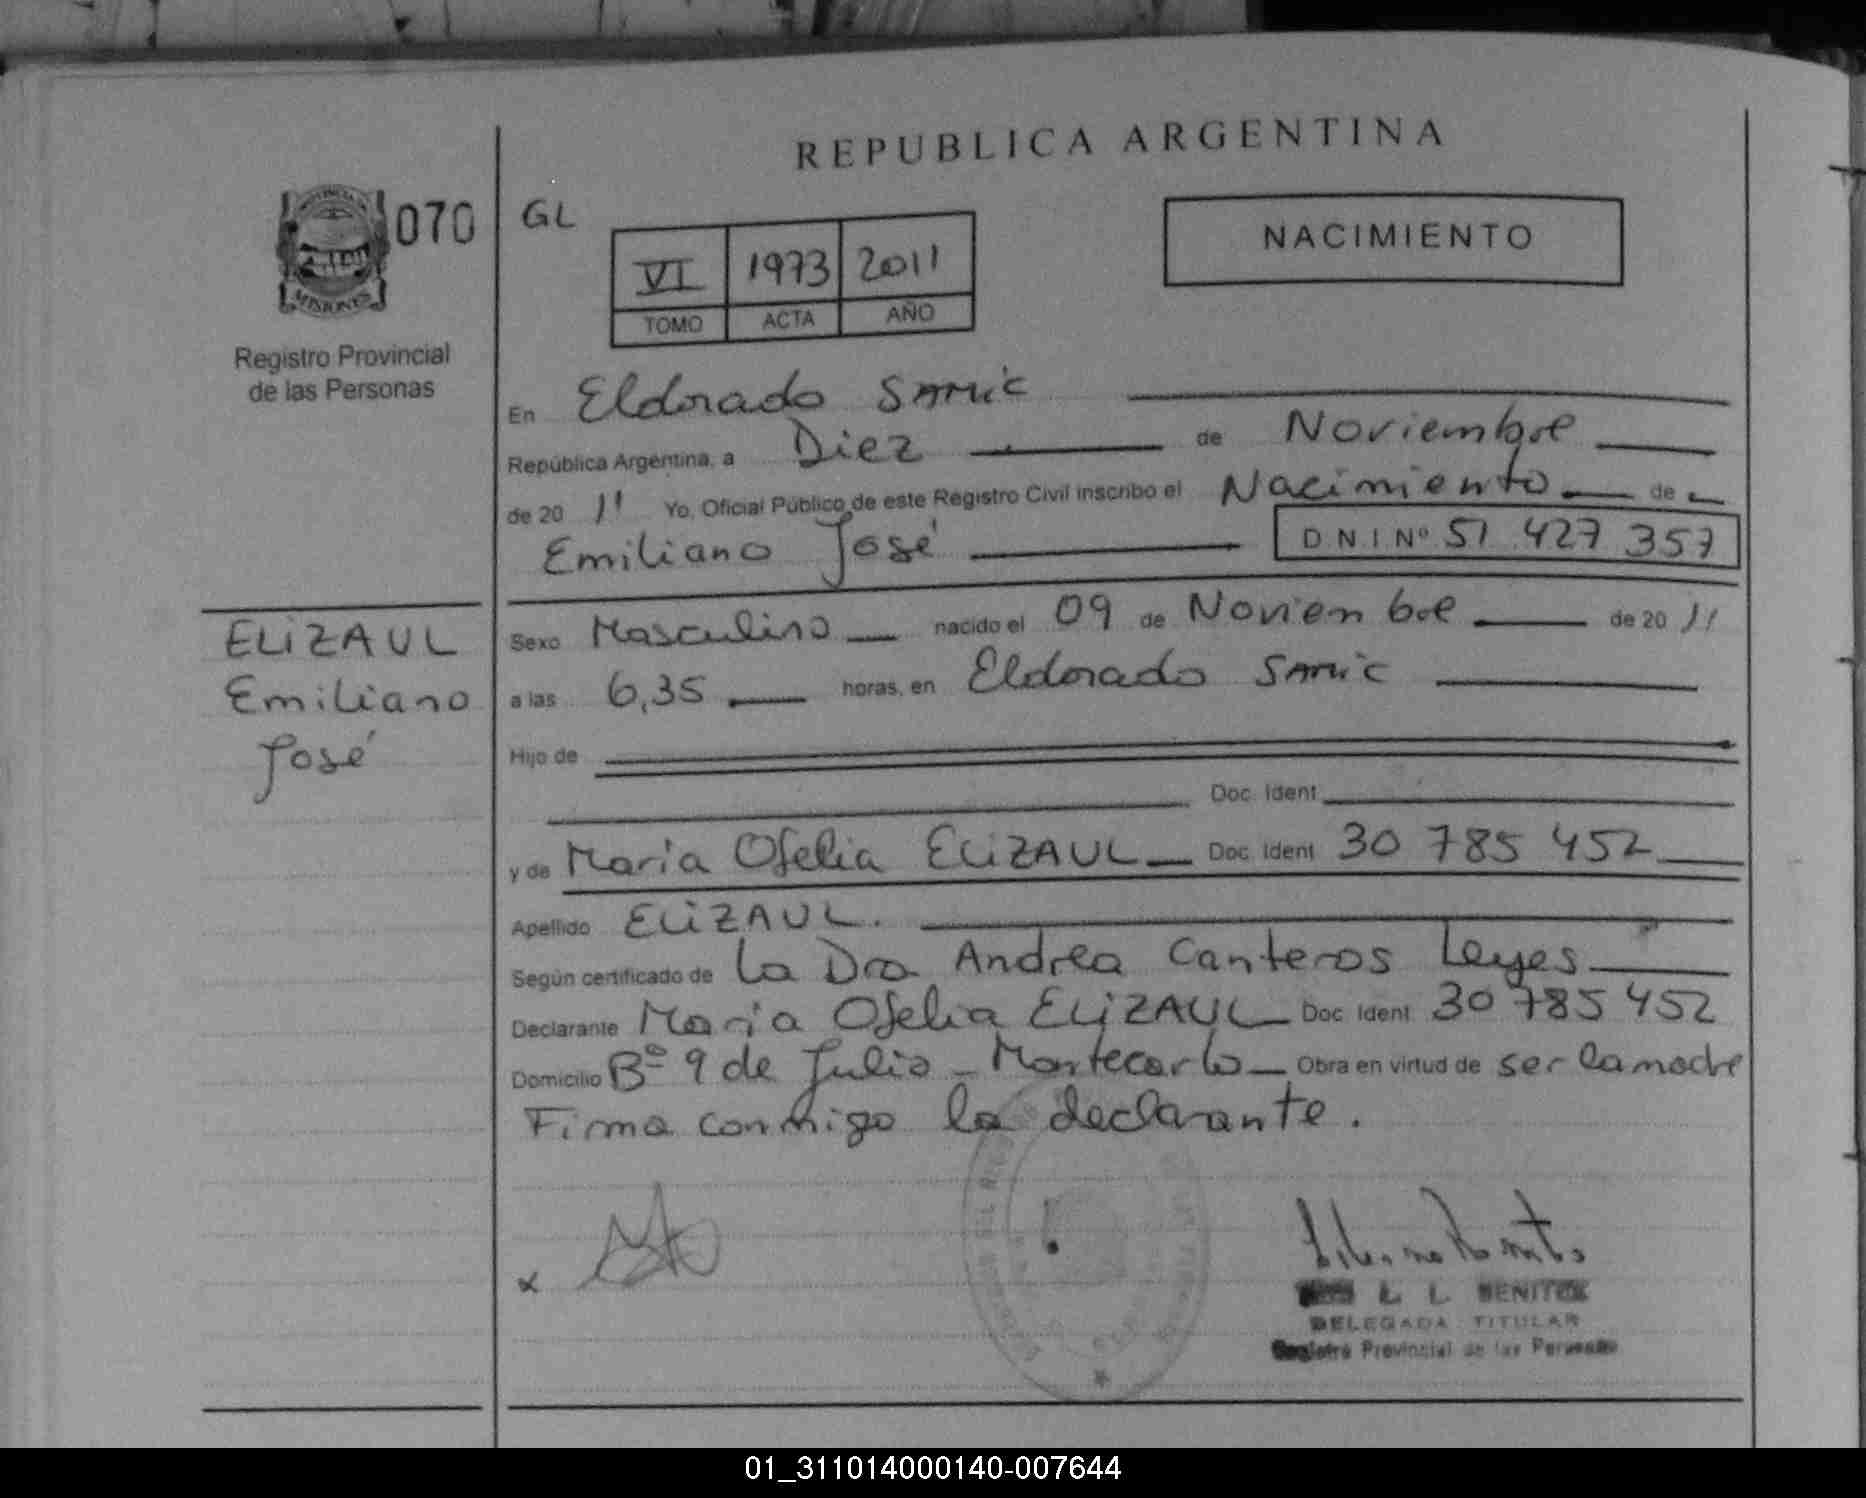 REPUBLICA ARGENTINA
PROVINCIA DE
MISIONES
070
GL
VI 1973 2011
TOMO ACTA AÑO
NACIMIENTO
Registro Provincial
de las Personas
En Eldorado SAMIC
República Argentina, a Diez de Noviembre
de 20 11 Yo, Oficial Público de este Registro Civil inscribo el Nacimiento de
Emiliano José D.N.I Nº 51 427 357
ELiZAUL
Emiliano
José
Sexo Masculino nacido el 09 de Noviembre de 20 11
a las 6,35 horas, en Eldorado SAMIC
Hijo de
Doc. Ident
y de María Ofelia ELiZAUL Doc. Ident 30 785 452
Apellido ELiZAUL.
Según certificado de la Dra Andrea Canteros Leyes
Declarante María Ofelia ELiZAUL Doc. Ident 30 785 452
Domicilio Bº 9 de Julio - Montecarlo Obra en virtud de ser la madre
Firma conmigo la declarante.
x
L. L. BENITEZ
DELEGADA TITULAR
Registro Provincial de las Personas
01_311014000140-007644